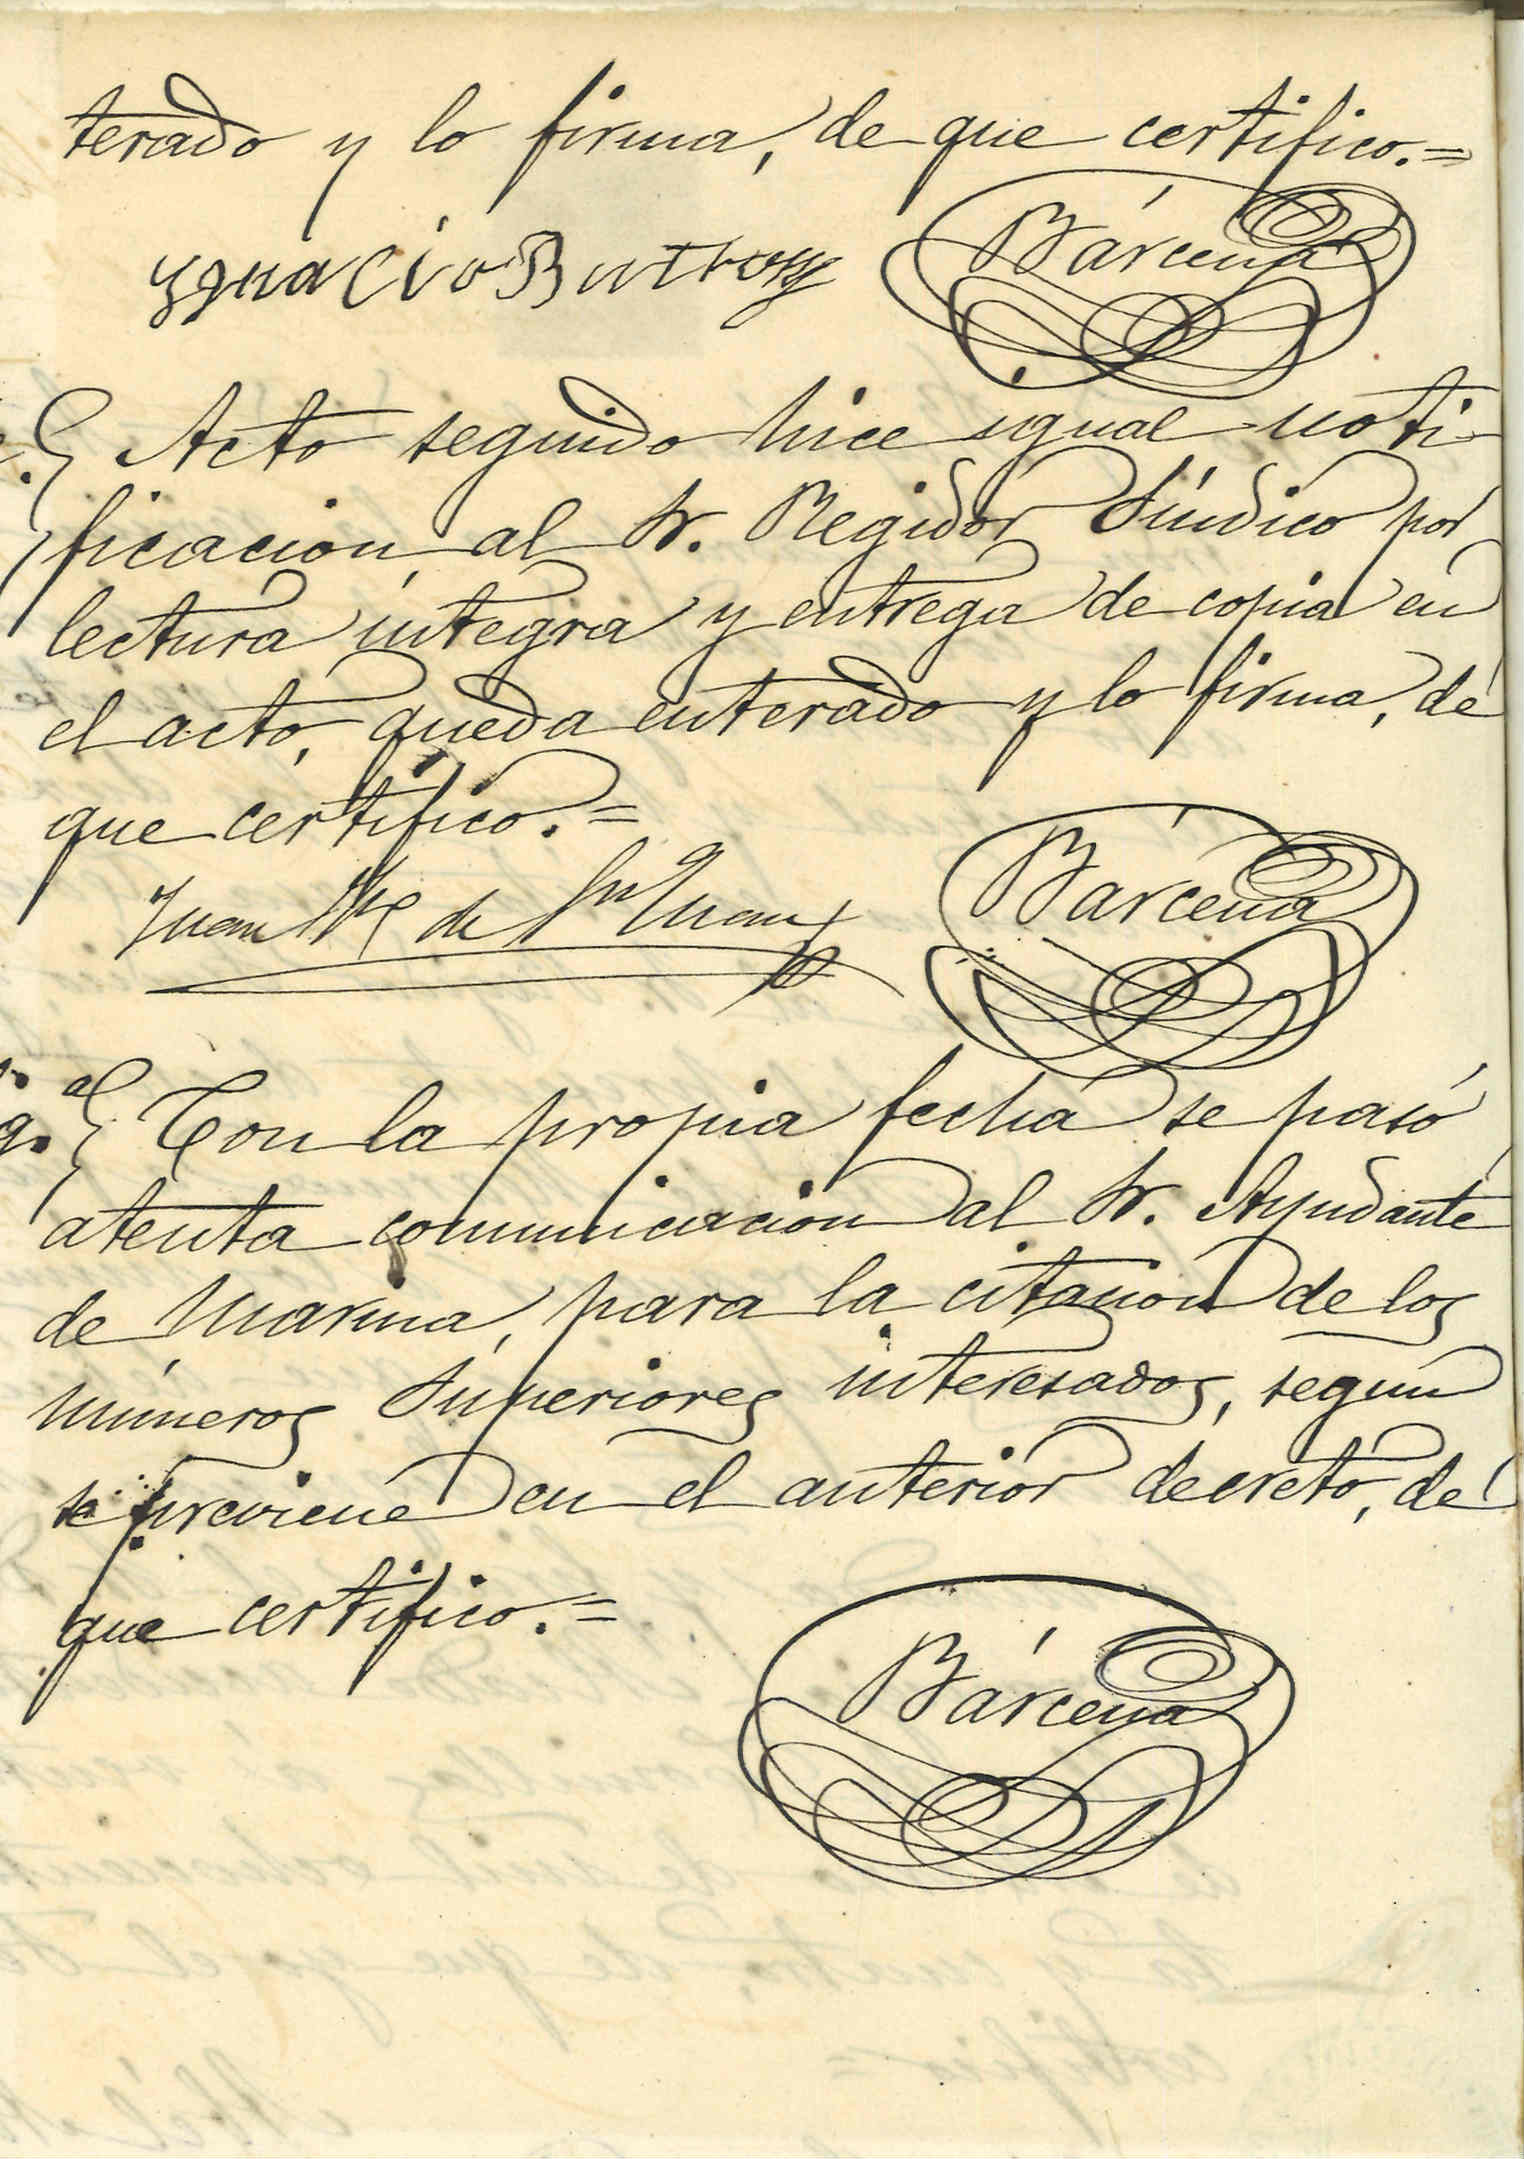 terado y lo firma, de que certifico.=
Ygnacio Butron Bárcena
Acto seguido hice igual noti-
ficacion al Sr. Regidor Síndico por
lectura íntegra y entrega de copia en
el acto, queda enterado y lo firma, de
que certifico.=
Juan de Sn Juan Bárcena
Con la propia fecha se pasó
atenta comunicacion al Sr. Ayudante
de Marina, para la citacion de los
números Superiores interesados, segun
se previene en el anterior decreto, de
que certifico.=
Bárcena